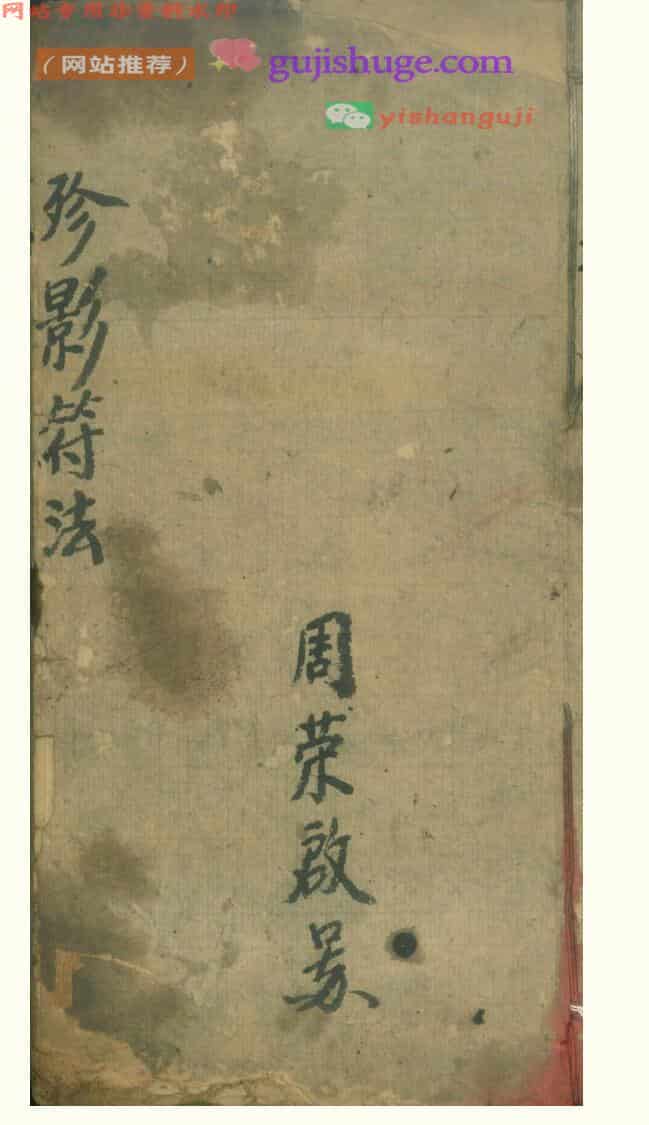 网站专用
(网站推荐) gujishuge.com
yishanguji
珍影符法
周荣啟